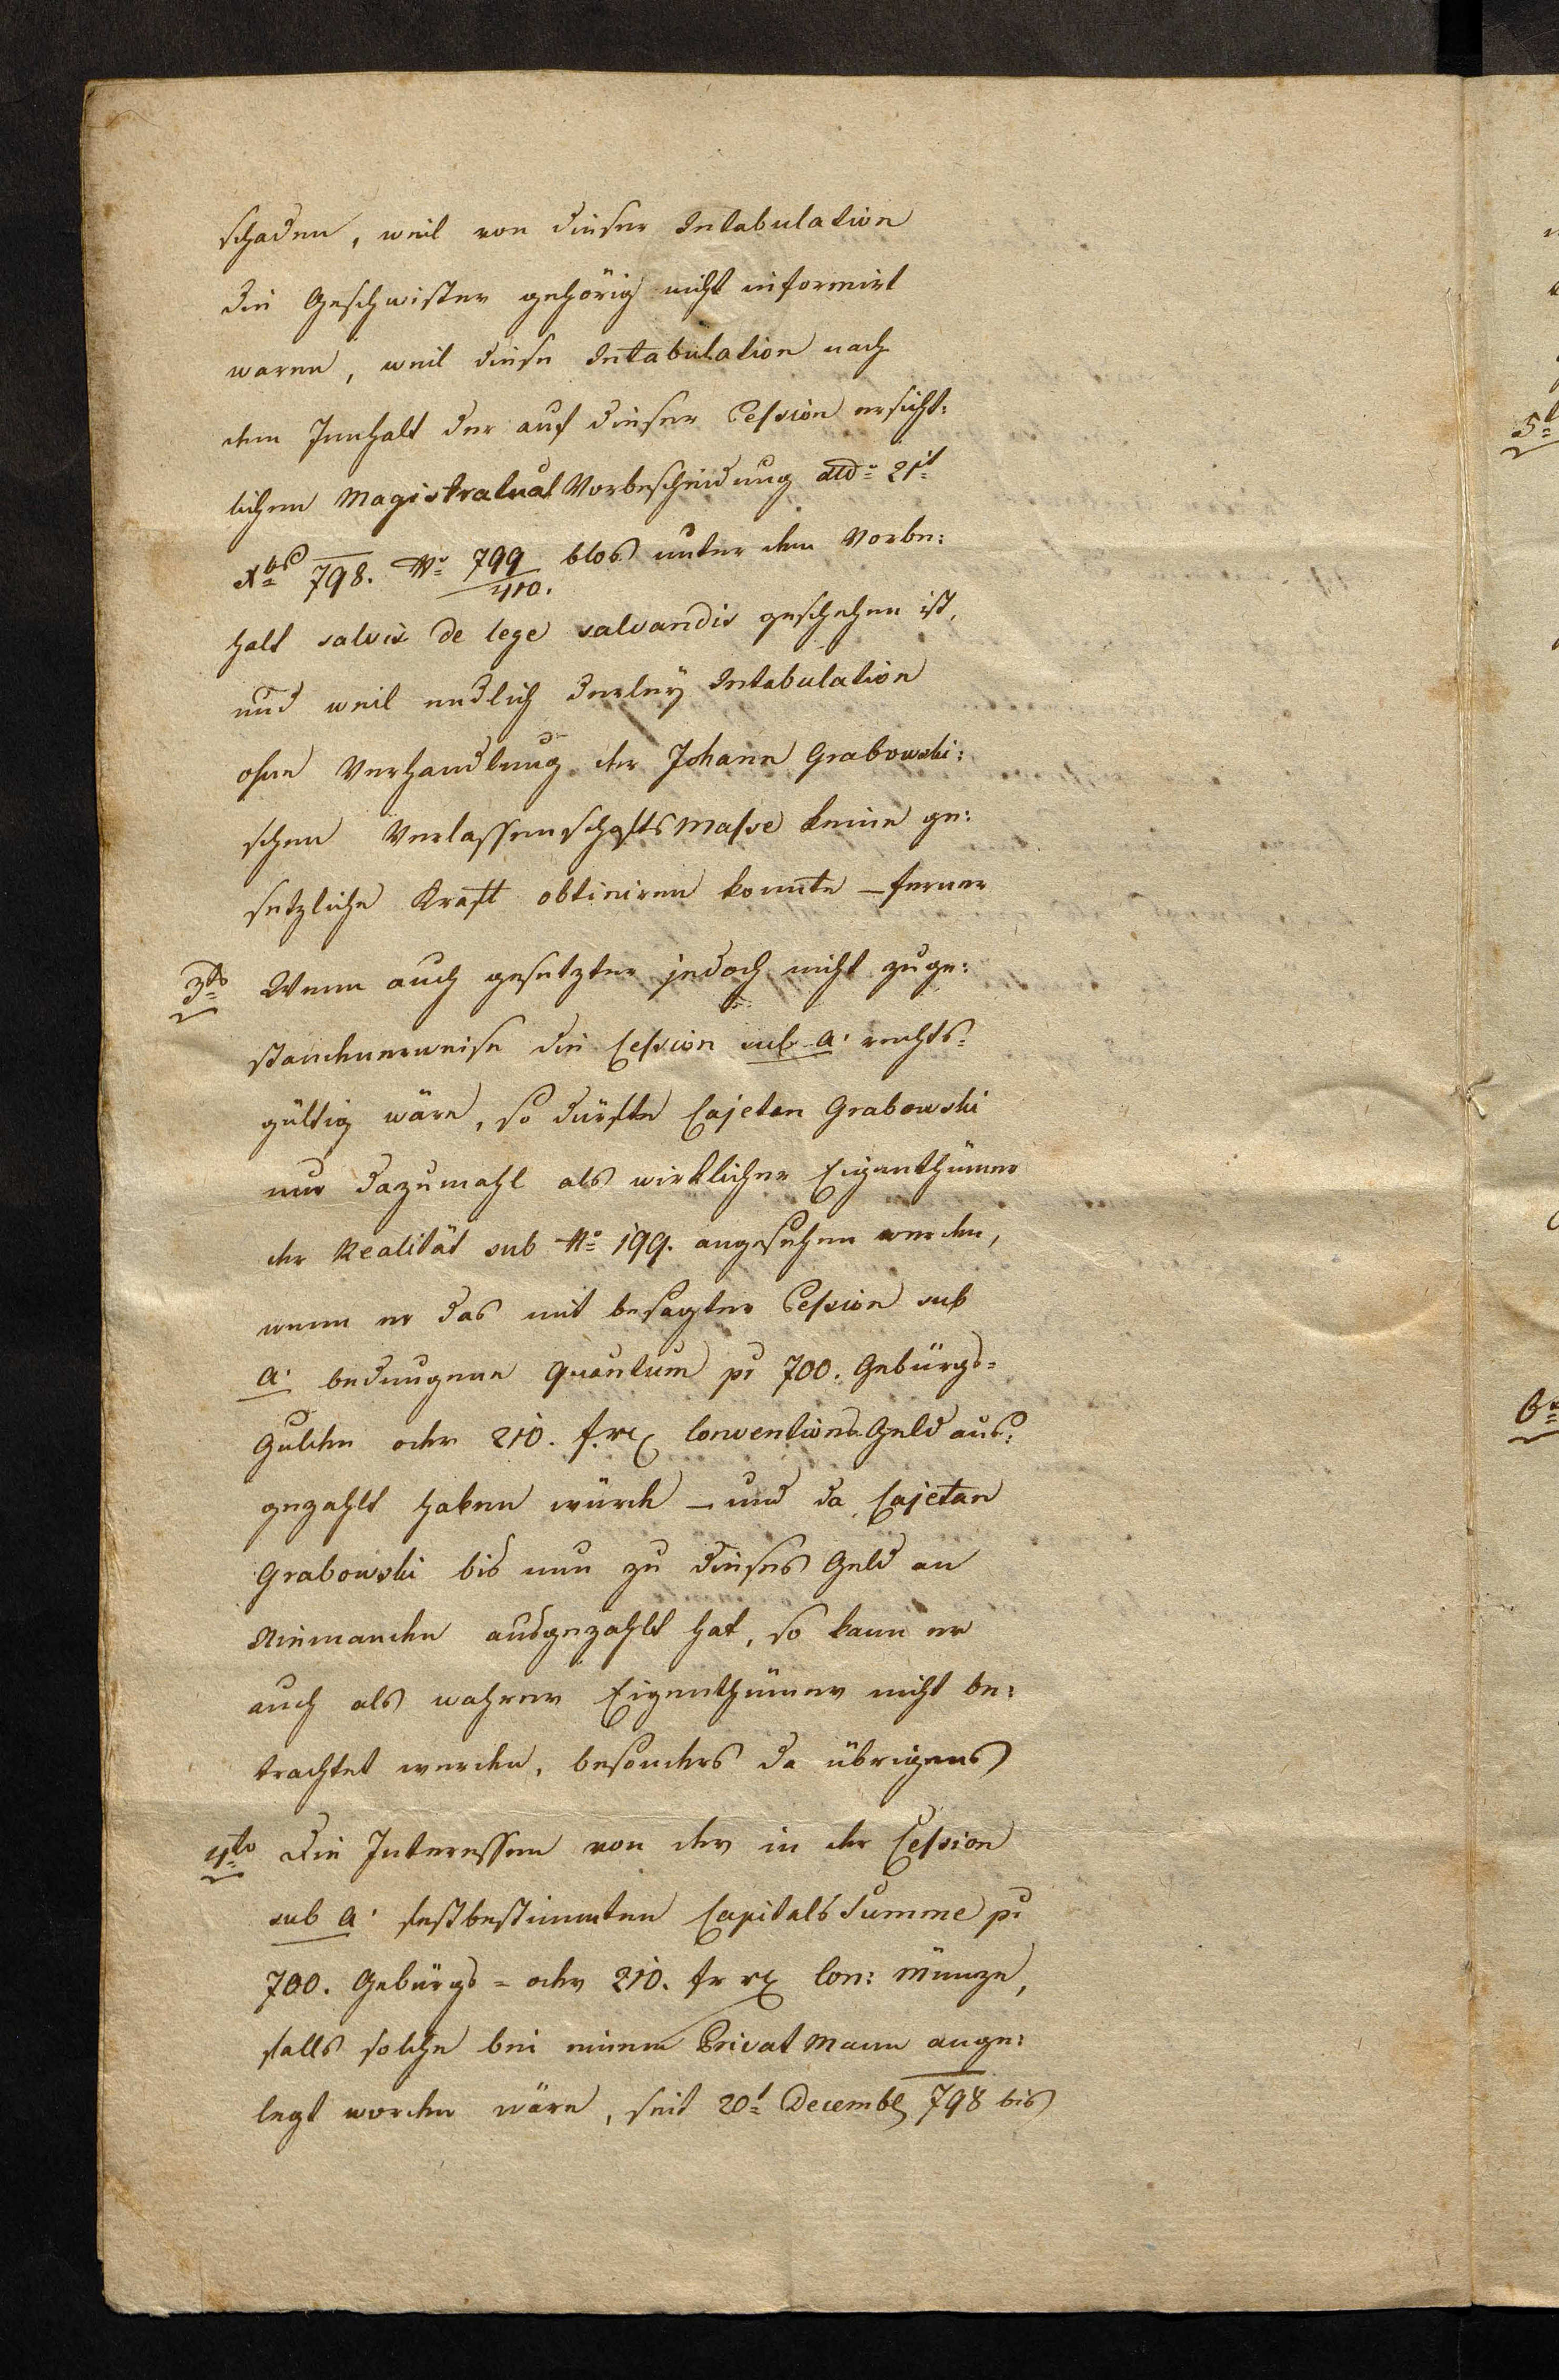 schaden, weil von dieser Intabulation
die Geschwister gehörig nicht informirt
waren, weil diese Intabulation nach
dem Innhalt der auf dieser Cession ersicht:
lichen Magistratual Vorbescheidung ddo 21t
Xbr 798. No 799/410. blos unter dem Vorbe:
halt salvis de lege salvandis geschehen ist,
und weil endlich derley Intabulation
ohne Verhandlung der Johann Grabowski:
schen Verlassenschafts Masse keine ge:
setzliche Kraft obtiniren konnte – ferner
3tio Wenn auch gesetzter jedoch nicht zuge:
standenerweise die Cession sub a. rechts=
gültig wäre, so dürfte Cajetan Grabowski
nur dazumahl als wirklicher Eigenthümer
der Realität sub No 199. angesehen werden,
wenn er das mit besagter Cession sub
a. bedungene Quantum pr 700. Gebürgs=
Gulden oder 210. f. rx Conventions Geld aus:
gezahlt haben würde – und da Cajetan
Grabowski bis nun zu dieses Geld an
Niemanden ausgezahlt hat, so kann er
auch als wahrer Eigenthümer nicht be:
trachtet werden, besonders da übrigens
4to Die Interessen von der in der Cession
sub a. festbestimmten Capitals Summe pr
700. Gebürgs= oder 210. fr rx Con: Münze,
falls solche bei einem Privat Mann ange:
legt worden wäre, seit 20t Decembr 798 bis
5t
6t